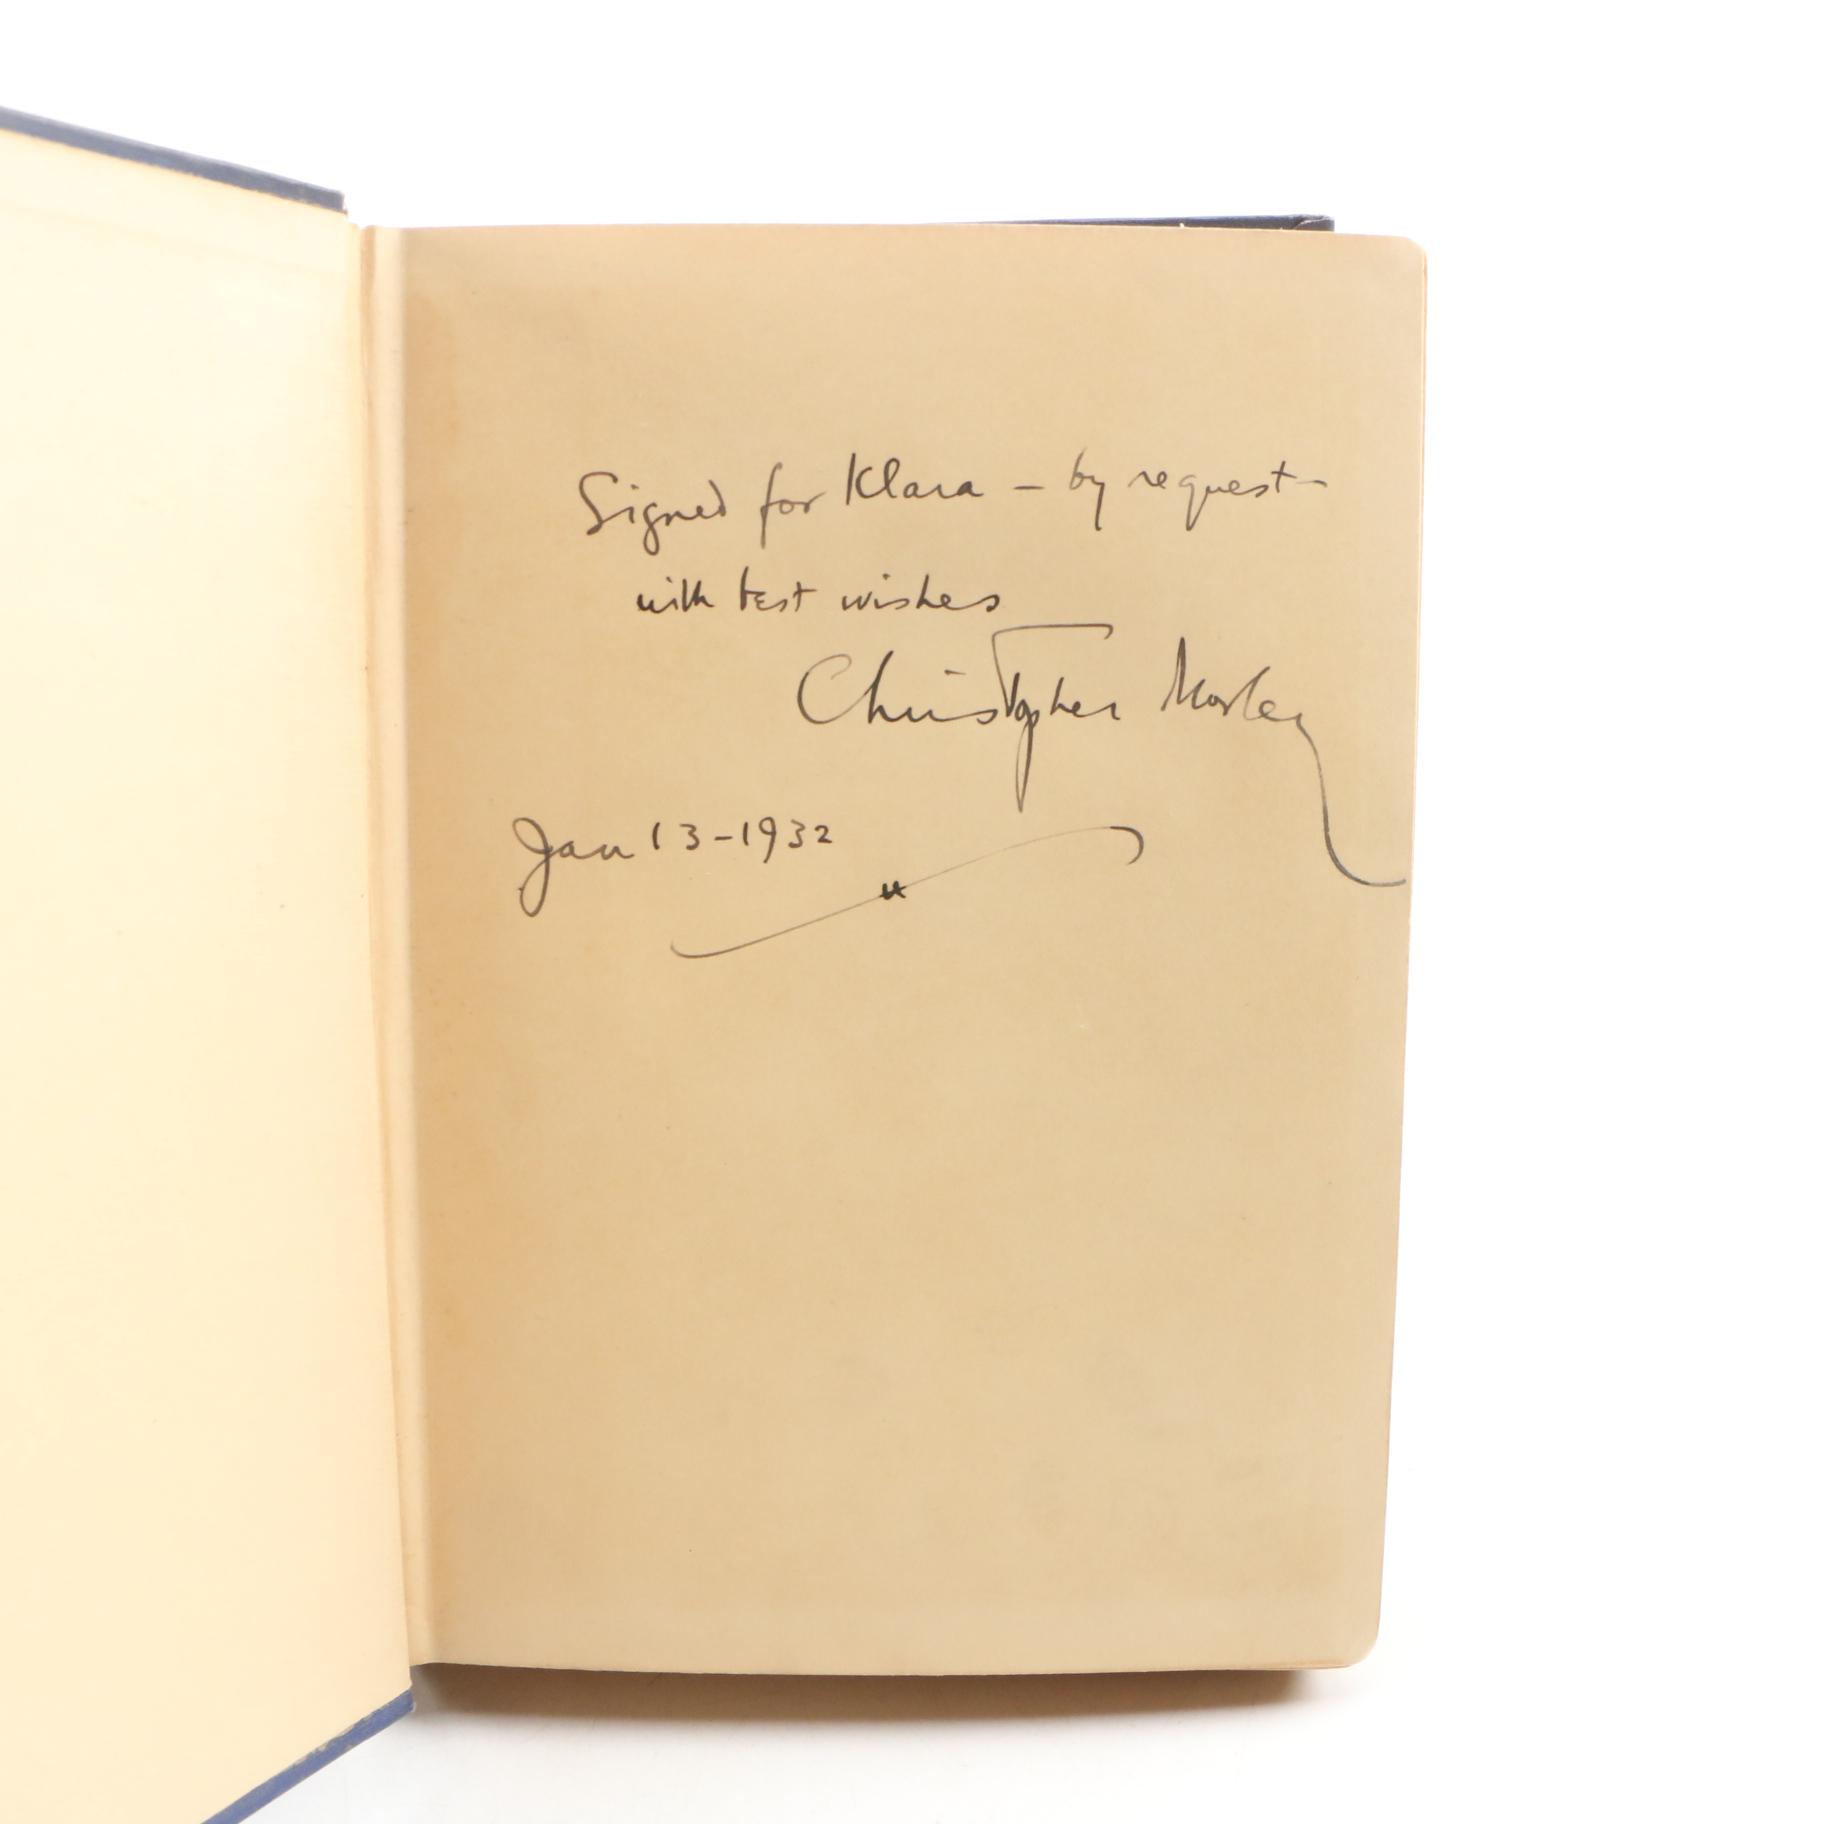 Signed for Klara – by request –
with best wishes
Christopher Morley
Jan 13 – 1932